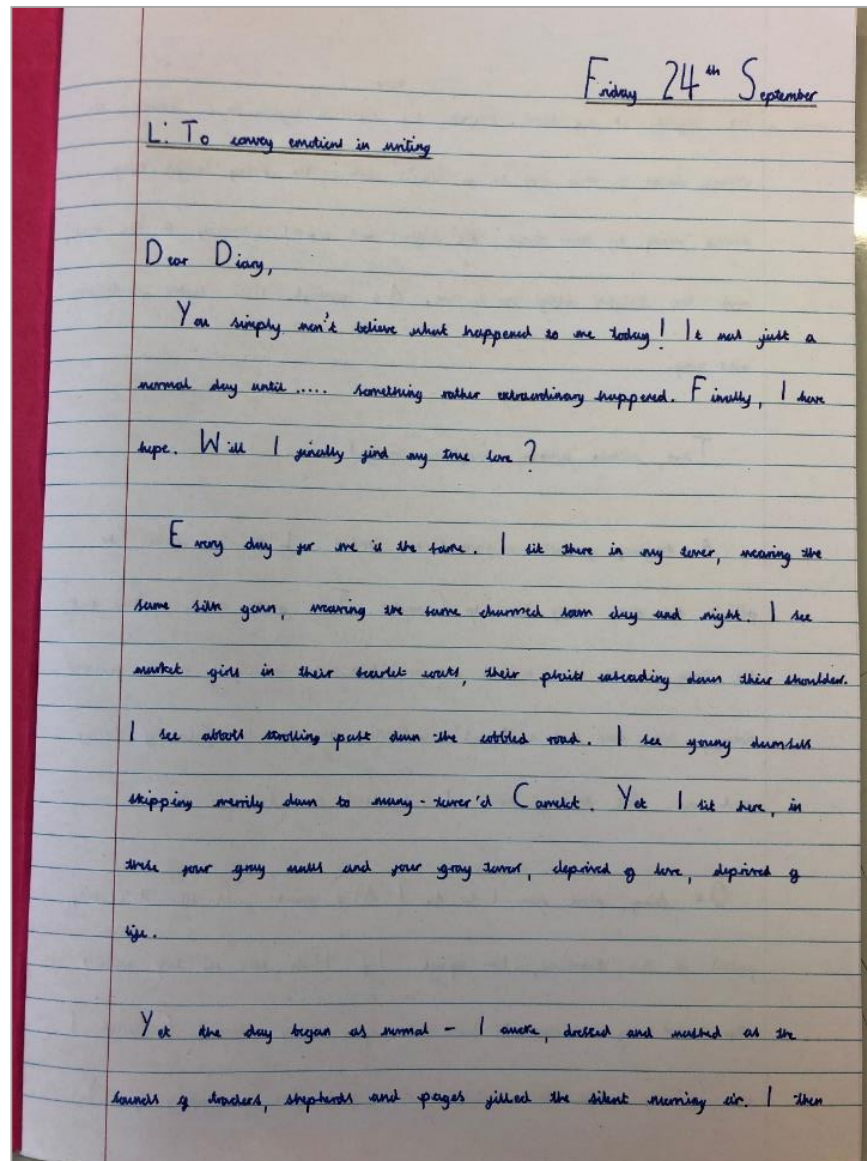 Friday 24th September
L: To convey emotions in writing
Dear Diary,
You simply won't believe what happened to me today! It was just a
normal day until ..... something rather extraordinary happened. Finally, I have
hope. Will I finally find my true love?
Every day for me is the same. I sit there in my tower, wearing the
same silk gown, weaving the same charmed loom day and night. I see
market girls in their scarlet coats, their plaits cascading down their shoulders.
I see abbots strolling past down the cobbled road. I see young damsels
skipping merrily down to many-tower'd Camelot. Yet I sit here, in
these four gray walls and four gray towers, deprived of love, deprived of
life.
Yet the day began as normal - I awoke, dressed and washed as the
sounds of traders, shepherds and pages filled the silent morning air. I then